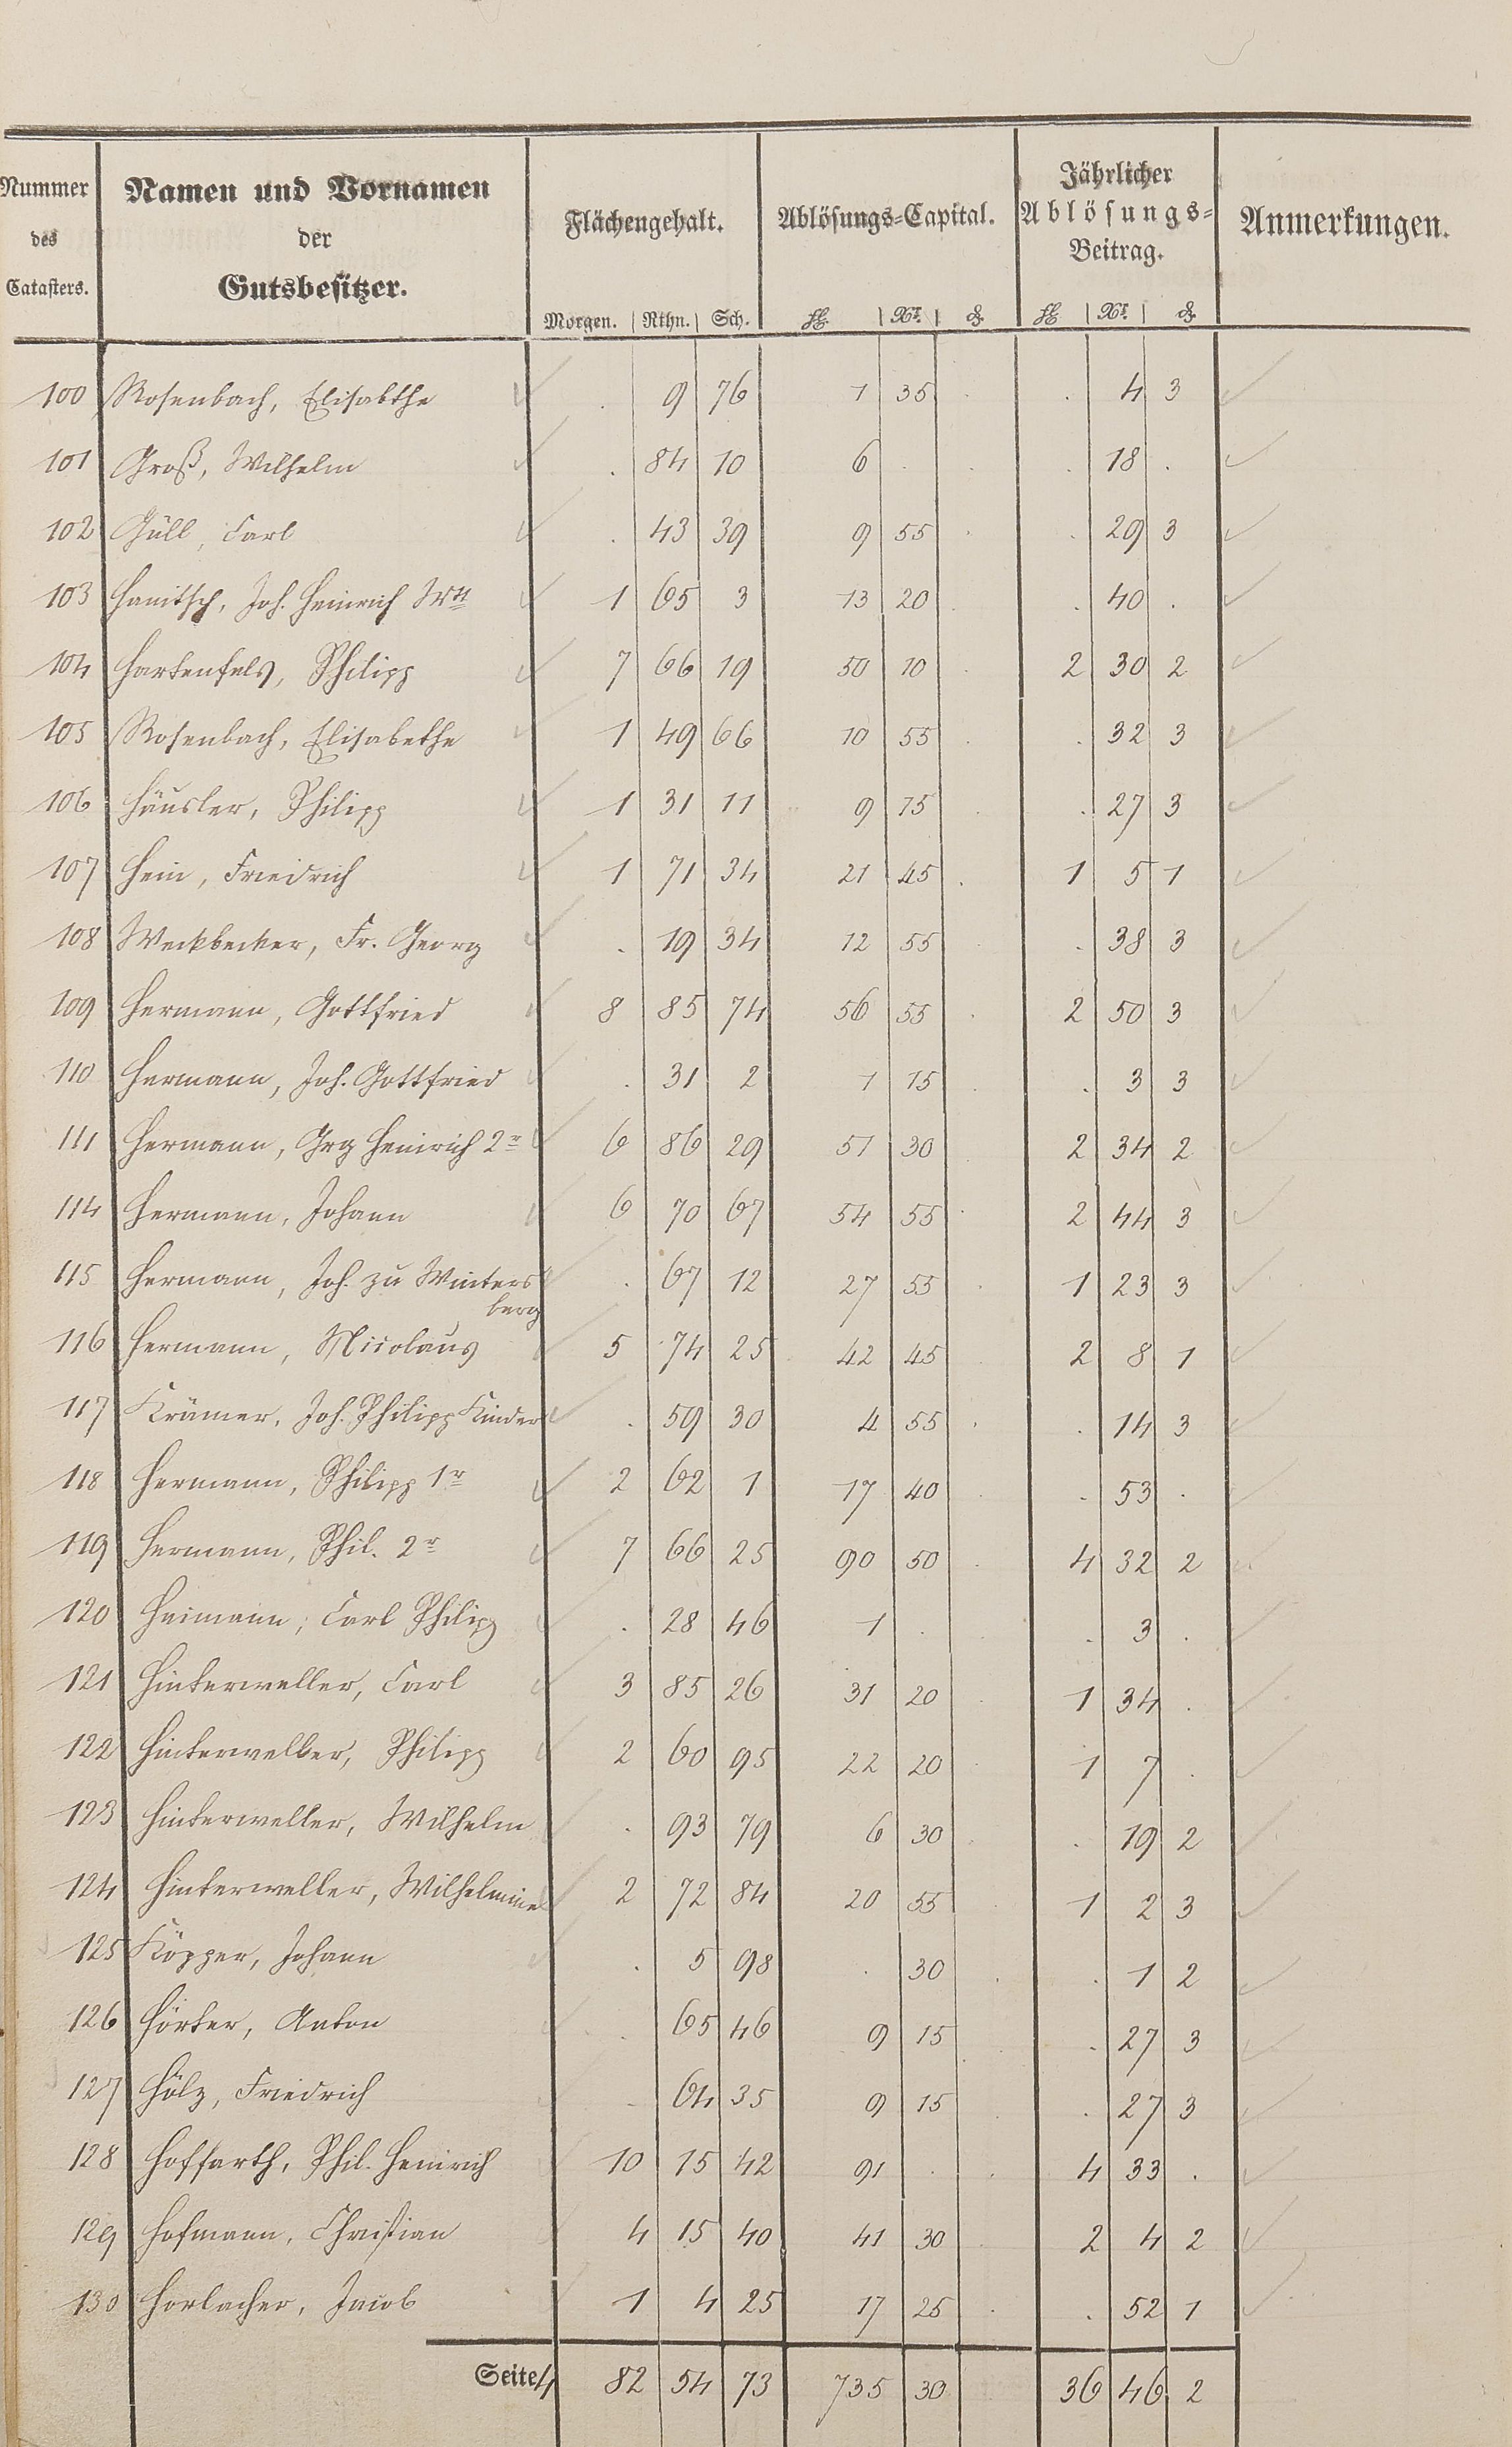 Nummer des Catasters. Namen und Vornamen der Gutsbesitzer. Flächengehalt. Ablösungs-Capital. Jährlicher Ablösungs-Beitrag. Anmerkungen.
Morgen. Rthn. Sch. fl. Xr. ₰ fl. Xr. ₰
100 Rosenbach, Elisabthe . 9 76 1 35 . . 4 3
101 Groß, Wilhelm . 84 10 6 . . . 18 .
102 Güll, Carl . 43 39 9 55 . . 29 3
103 Hanitsch, Joh. Heinrich Wtt 1 65 3 13 20 . . 40 .
104 Hartenfels, Philipp 7 66 19 50 10 . 2 30 2
105 Rosenbach, Elisabethe 1 49 66 10 55 . . 32 3
106 Häusler, Philipp 1 31 11 9 15 . . 27 3
107 Hein, Friedrich 1 71 34 21 45 . 1 5 1
108 Weckbecker, Fr. Georg . 19 34 12 55 . . 38 3
109 Hermann, Gottfried 8 85 74 56 55 . 2 50 3
110 Hermann, Joh. Gottfried . 31 2 1 15 . . 3 3
111 Hermann, Grg Heinrich 2r 6 86 29 51 30 2 34 2
114 Hermann, Johann 6 70 67 54 55 . 2 44 3
115 Hermann, Joh. zu Winters . 67 12 27 55 . 1 23 3
berg
116 Hermann, Nicolaus 5 74 25 42 45 . 2 8 1
117 Krämer, Joh. Philipp Kinder . 59 30 4 55 . . 14 3
118 Hermann, Philipp 1r 2 62 1 17 40 . . 53 .
119 Hermann, Phil. 2r 7 66 25 90 50 . 4 32 2
120 Heimann, Carl Philipp . 28 46 1 . . . 3 .
121 Hinterweller, Carl 3 85 26 31 20 . 1 34 .
122 Hinterweller, Philipp 2 60 95 22 20 . 1 7 .
123 Hinterweller, Wilhelm . 93 79 6 30 . . 19 2
124 Hinterweller, Wilhelmine 2 72 84 20 55 . 1 2 3
125 Köpper, Johann . 5 98 . 30 . . 1 2
126 Hörter, Anton . 65 46 9 15 . . 27 3
127 Hölz, Friedrich . 64 35 9 15 . . 27 3
128 Hoffarth, Phil. Heinrich 10 15 42 91 . . 4 33 .
129 Hofmann, Christian 4 15 40 41 30 . 2 4 2
130 Horlacher, Jacob 1 4 25 17 25 . . 52 1
Seite 4 82 54 73 735 30 36 46 2